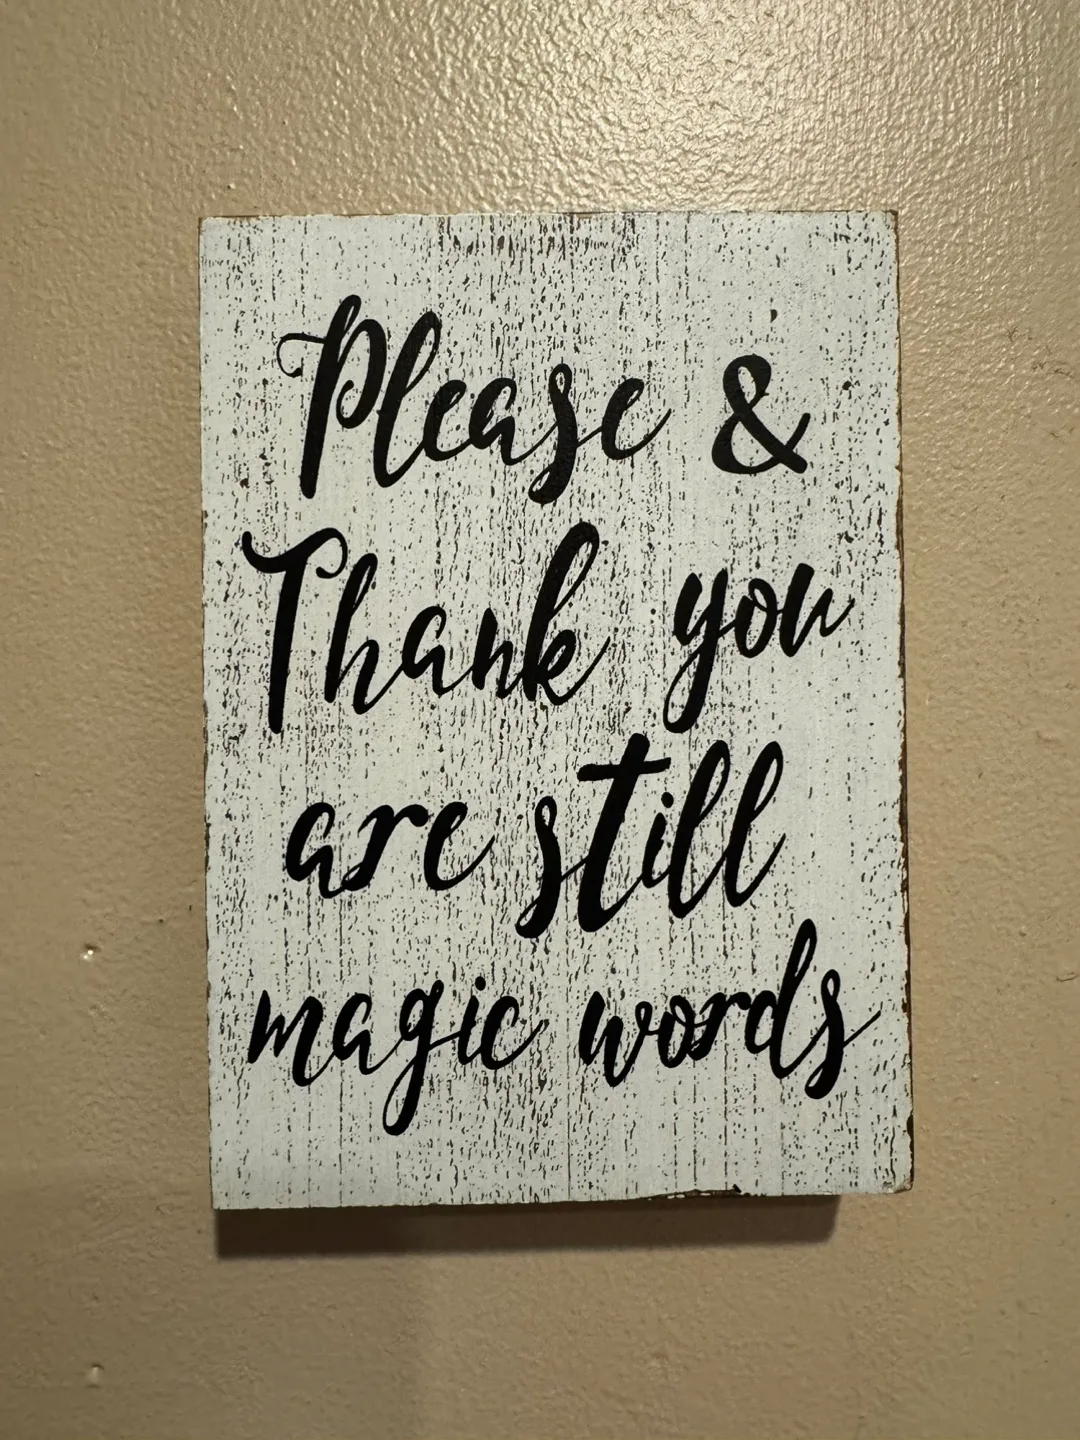 Please &
Thank you
are still
magic words